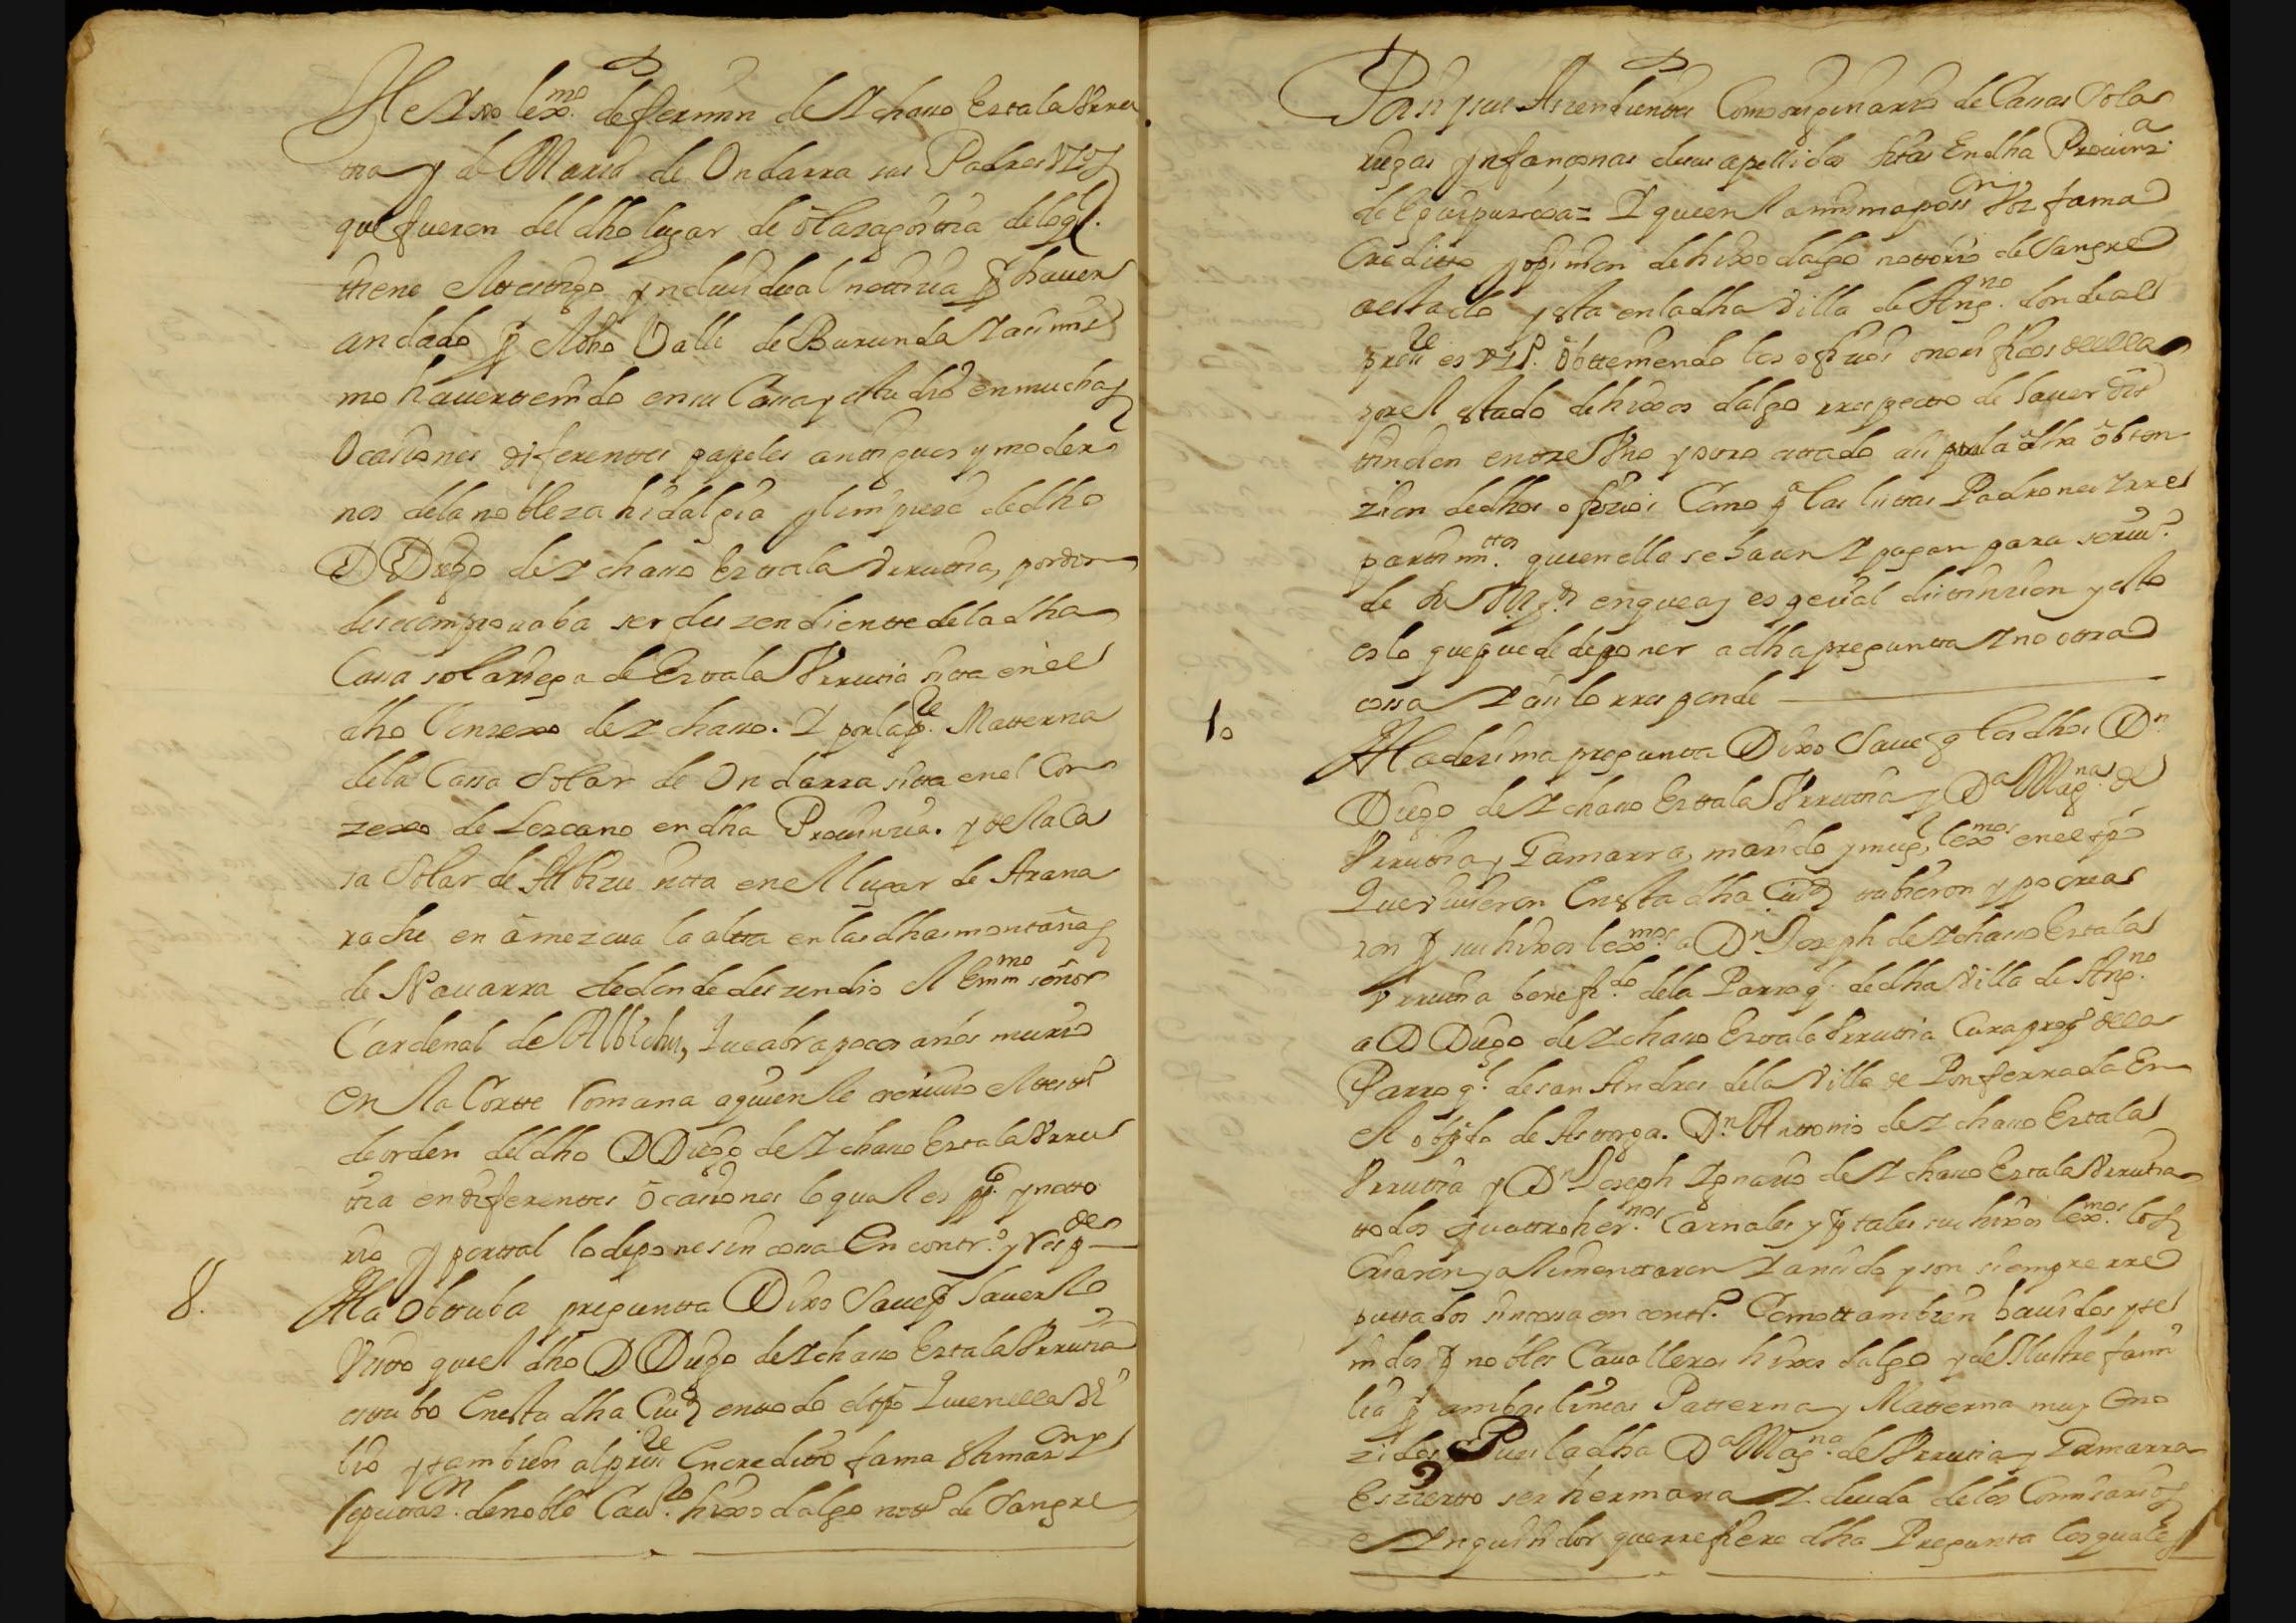 He Ixo lexmo. de fermin de Ichaso Ezcala Urru
tia y de Maria de Ondarra sus Padres Vzos
que fueron del dho lugar de olazagortia de logl.
tiene el ttestigo yndiuidual notizia p hauer
andado p el dho Valle de Burunda I asi mis
mo hauer tenido en su Casa y estudio en muchas
Ocasiones diferentes papeles antiguos y moder
nos de la nobleza hidalgia y limpieza de dho
D Diego de Ichaso Ezcala Urrutia, por don
de se comprouaba ser deszendiente de la dha
Casa solariega de Ezcala Urrutia sitta en el
dho Conzexo de Ichaso. I por la pte. Matterna
de la Casa Solar de Ondarra sitta en el Con
zexo de Lezcano en dha Prouinzia. y de la Ca
sa Solar de Albizu sitta en el lugar de Arana
rache en amezcua la alta en las dhas montañas
de Nauarra de donde deszendio el Emmo señor
Cardenal de Albizhu, Que abra pocos años murio
en la Cortte Romana a quien le escriuio el ttestº
de orden del dho D Diego de Ichaso Ezcala Urru
tia en diferentes ocasiones lo qual es ppco. y noto
rio y por tal lo depone sin cosa En contrº. y rresp de
8.
A la Obttuba pregunta Dixo Saue p hauerlo
Uisto que el dho D Diego de Ichaso Ezcala Urrutia
estubo En esta dha Ciud en todo el tpo Que en ella Vi
bio y tambien al presste En creditto fama estimazon y
Reputazn. de noble Cauro. hixo dalgo nottº de Sangre
Por si y sus Aszendientes Como originario de Casas Sola
riegas ynfanzonas de sus apellidos sitas En dha Prouinza
de Guipuzcoa = I que en la misma posson Voz fama
Creditto y opinion de hixo dalgo nottorio de Sangre
a estado y esta en la dha Villa de Angno. donde al
pressente es Vzº. obtteniendo los ofizios onorificos de ella
por el estado de hixos dalgo rrespecto de hauer dis
tinzion entre Uno y otro estado asi para la dha obten
zion de dhos ofizios Como pa las listas Padrones I rre
partimttos. que en ella se hazen I pagan para seruiº.
de Su Magd en que ay espezial distinzion y esto
es lo que puede deponer a dha pregunta I no otra
cosa I asi lo rresponde
10
A la dezima pregunta Dixo Saue q los dhos Dn
Diego de Ichaso Ezcala Urrutia y Da Magna de
Urrutia y Gamarra, marido y mugr, lexmos en el tpo
Que viuieron En esta dha Ciud tubieron y pocrea
ron p sus hixos lexmos. a Dn Joseph de Ichaso Ezcala
Urrutia benefido. de la Parroql. de dha Villa de Angno.
a D Diego de Ichaso Ezcala Urrutia Cura propº de la
Parroql. de san Andres de la Villa de Ponferrada En
el obpdo de Astorga. Dn Anttonio de Ichaso Ezcala
Urrutia y Dn Joseph Ignazio de Ichaso Ezcala Urrutia
todos quattro hernos. Carnales y p tales sus hixos lexmos. los
Criaron y alimentaron I an sido y son siempre rre
puttados sin cosa en contrº. Como ttambien hauidos y te
nidos p nobles Caualleros hixos dalgo y de Illustre fami
lia p ambas lineas Patterna y Matterna muy cono
zidos Pues la dha Da Magna de Urrutia y Gamarra
Es zierto ser hermana I deuda de los Comisarios
e Inquisidor que rrefiere dha Pregunta los quales